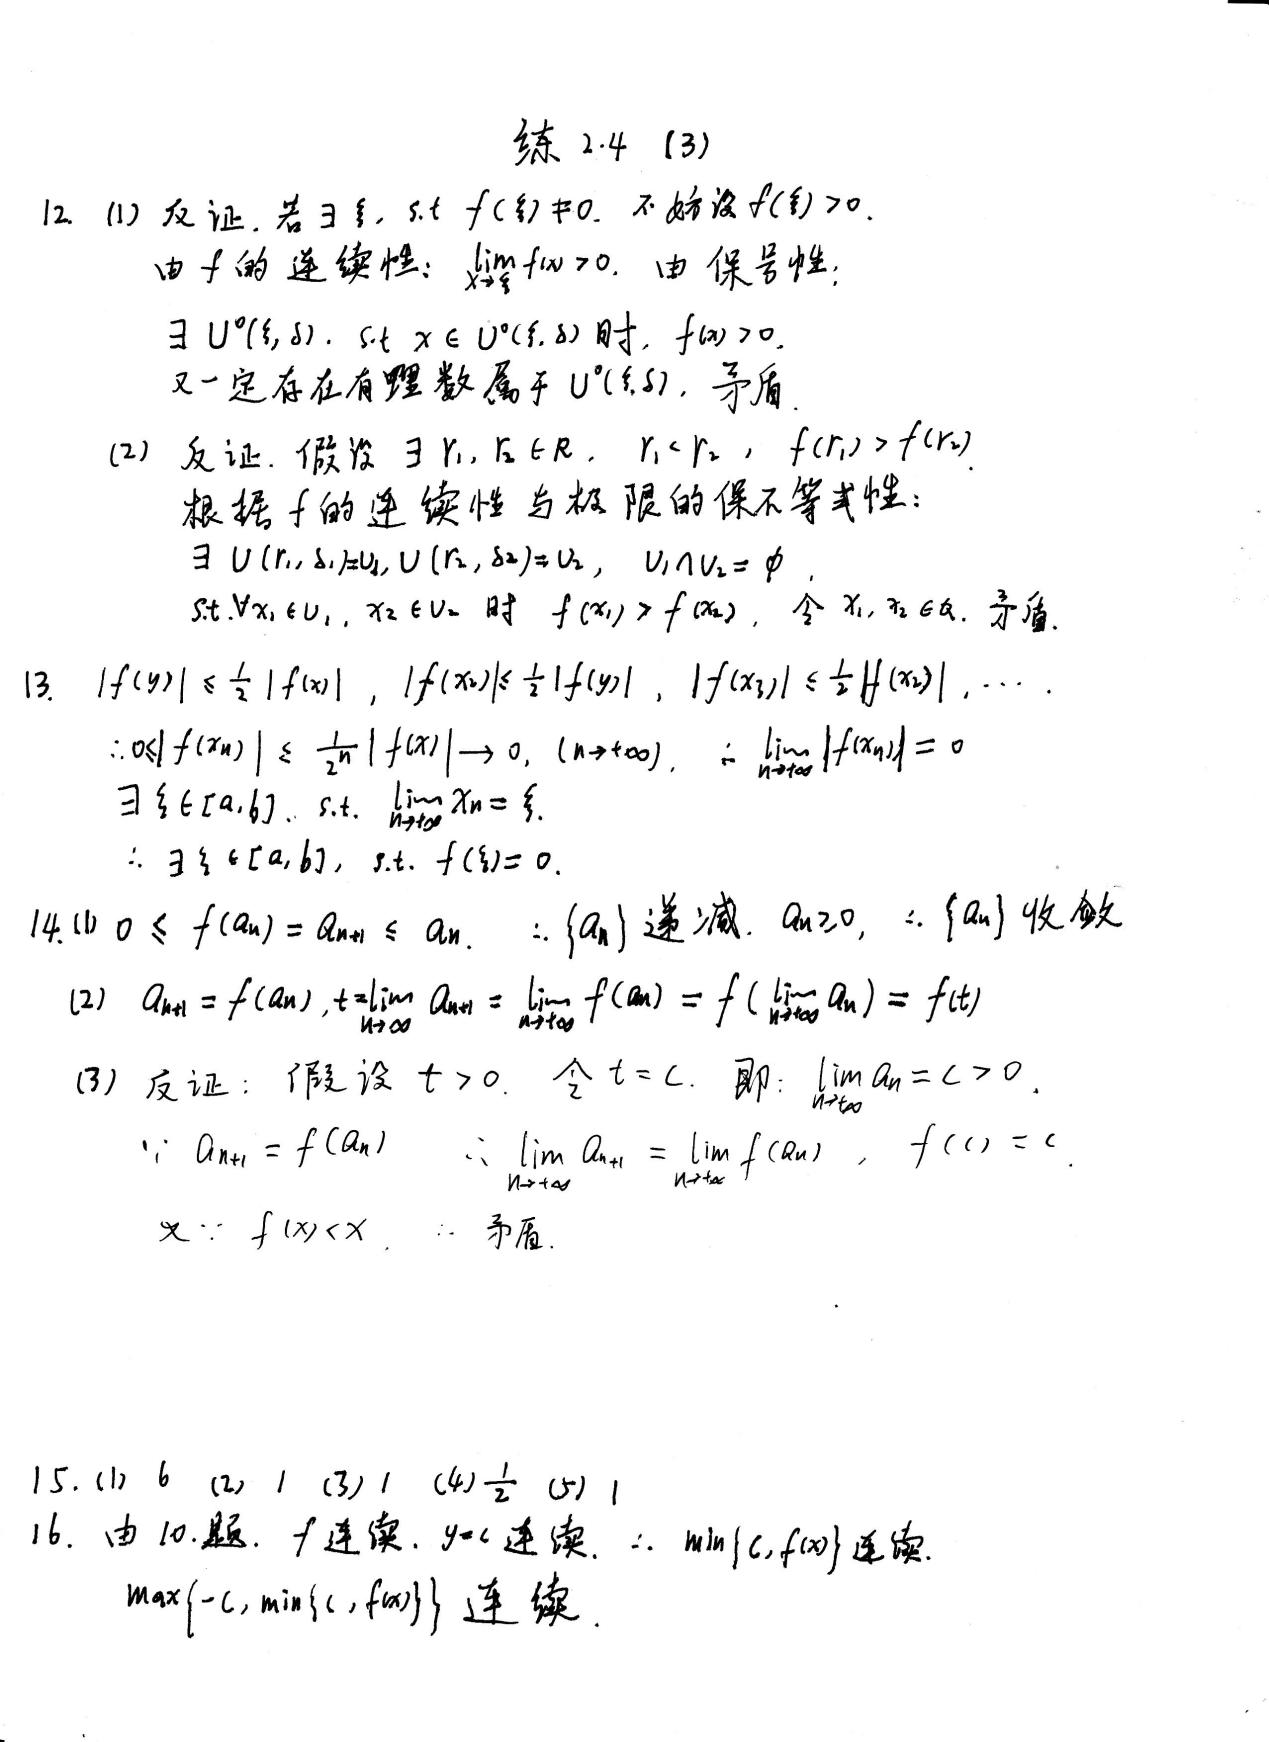 练 2.4 (3)
12. (1) 反证. 若∃ξ, s.t f(ξ)≠0. 不妨设 f(ξ)>0.
由 f 的连续性: lim_{x→ξ} f(x)>0. 由保号性:
∃ U°(ξ,δ). s.t x∈U°(ξ,δ)时, f(x)>0.
又一定存在有理数属于 U°(ξ,δ), 矛盾.
(2) 反证. 假设 ∃ r₁, r₂∈R, r₁<r₂, f(r₁)>f(r₂).
根据 f 的连续性与极限的保不等式性:
∃ U(r₁,δ₁)=U₁, U(r₂,δ₂)=U₂, U₁∩U₂=∅,
s.t.∀x₁∈U₁, x₂∈U₂ 时 f(x₁)>f(x₂), 令 x₁,x₂∈Q. 矛盾.
13. |f(y)| ≤ 1/2 |f(x)|, |f(x₂)| ≤ 1/2 |f(y)|, |f(x₃)| ≤ 1/2 |f(x₂)|, ….
∴0≤|f(xₙ)| ≤ 1/2ⁿ |f(x)| → 0, (n→+∞), ∴ lim_{n→+∞} |f(xₙ)| = 0
∃ξ∈[a,b]. s.t. lim_{n→+∞} xₙ = ξ.
∴ ∃ξ∈[a,b], s.t. f(ξ)=0.
14.(1) 0 ≤ f(aₙ) = aₙ₊₁ ≤ aₙ. ∴{aₙ}递减. aₙ≥0, ∴{aₙ}收敛
(2) aₙ₊₁ = f(aₙ), t=lim_{n→∞} aₙ₊₁ = lim_{n→+∞} f(aₙ) = f(lim_{n→+∞} aₙ) = f(t)
(3) 反证: 假设 t>0. 令 t=c. 即: lim_{n→+∞} aₙ = c>0.
∵ aₙ₊₁ = f(aₙ) ∴ lim_{n→+∞} aₙ₊₁ = lim_{n→+∞} f(aₙ), f(c)=c.
又∵ f(x)<x. ∴ 矛盾.
15. (1) 6 (2) 1 (3) 1 (4) 1/2 (5) 1
16. 由10.题. f连续. y=c连续. ∴ min{c,f(x)}连续.
max{-c, min{c, f(x)}} 连续.